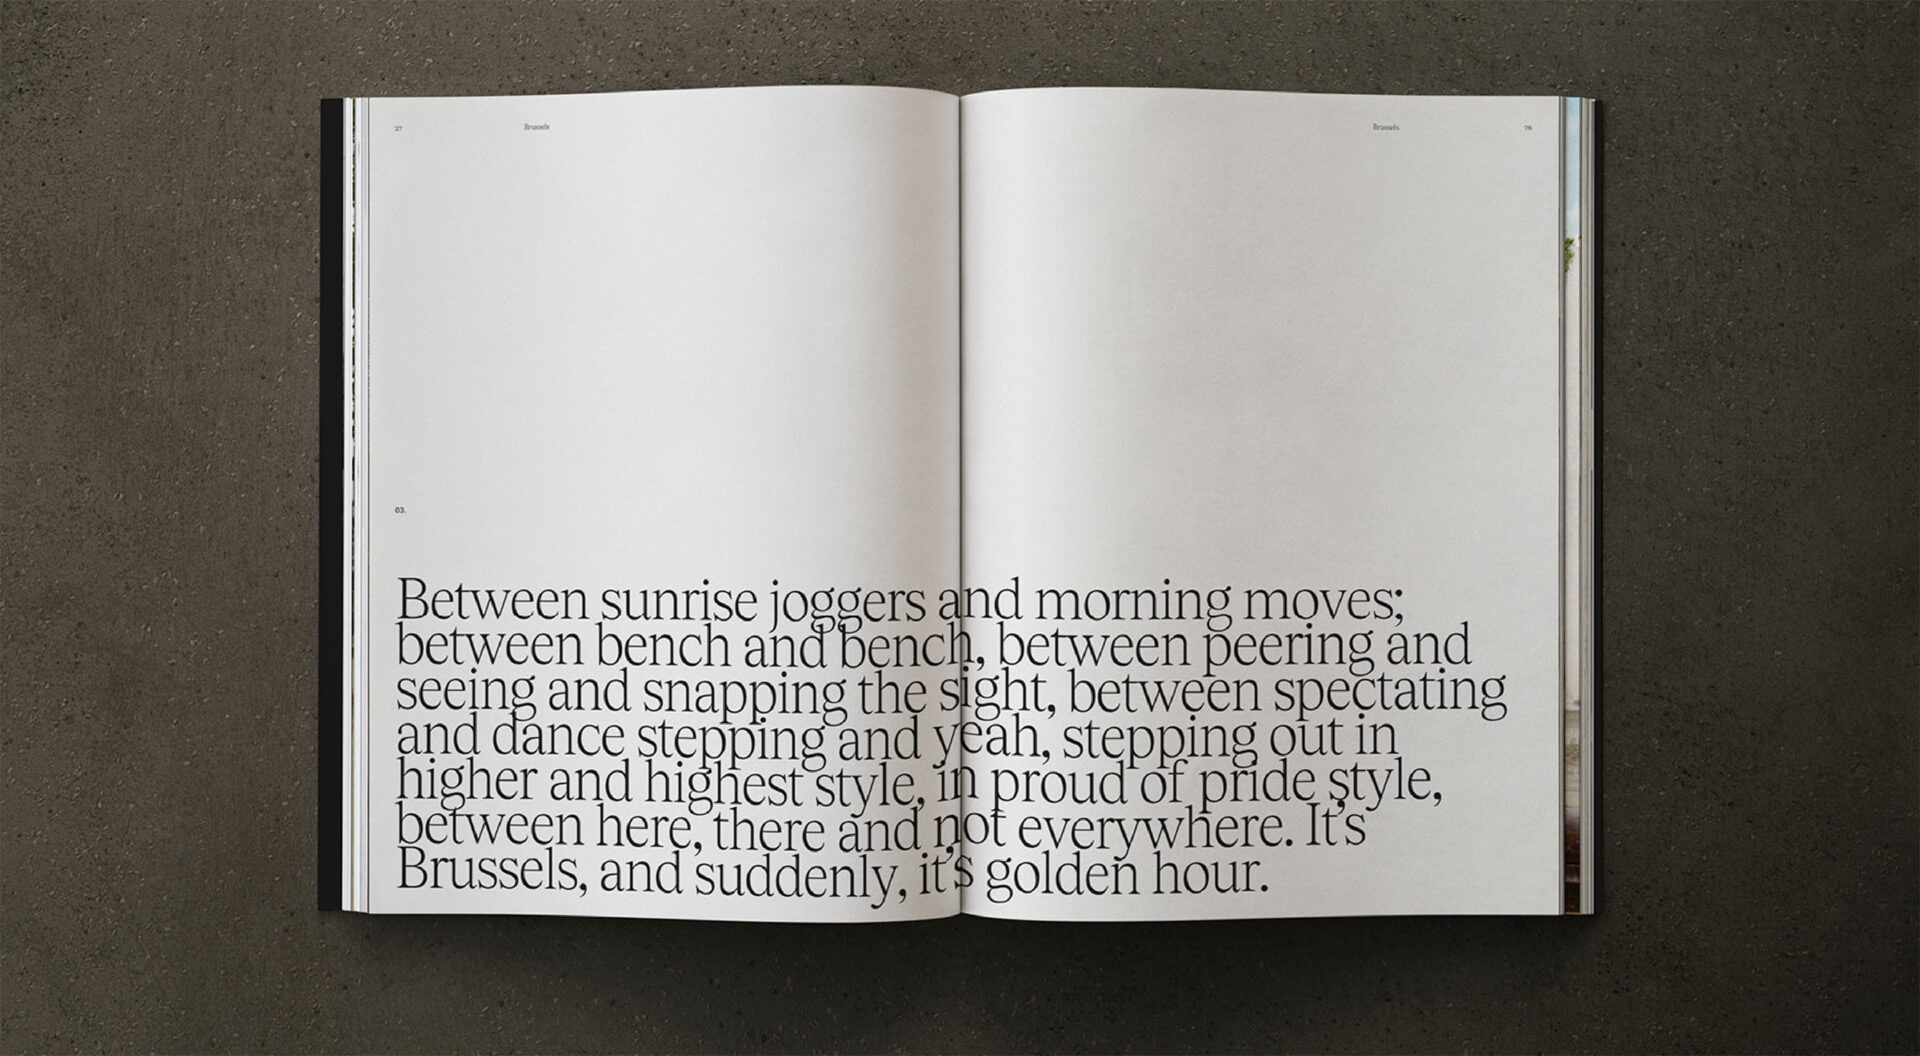 27
Brussels
Brussels
28
03.
Between sunrise joggers and morning moves;
between bench and bench, between peering and
seeing and snapping the sight, between spectating
and dance stepping and yeah, stepping out in
higher and highest style, in proud of pride style,
between here, there and not everywhere. It's
Brussels, and suddenly, it's golden hour.